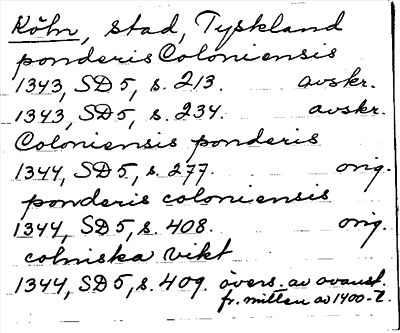 Köln, stad, Tyskland
ponderis Coloniensis
1343, SD 5, s. 213. avskr.
1343, SD 5, s. 234. avskr.
Coloniensis ponderis
1344, SD 5, s. 277. orig.
ponderis coloniensis
1344, SD 5, s. 408. orig.
colniska vikt
1344, SD 5, s. 409. övers. av ovanst.
fr. mitten av 1400-t.